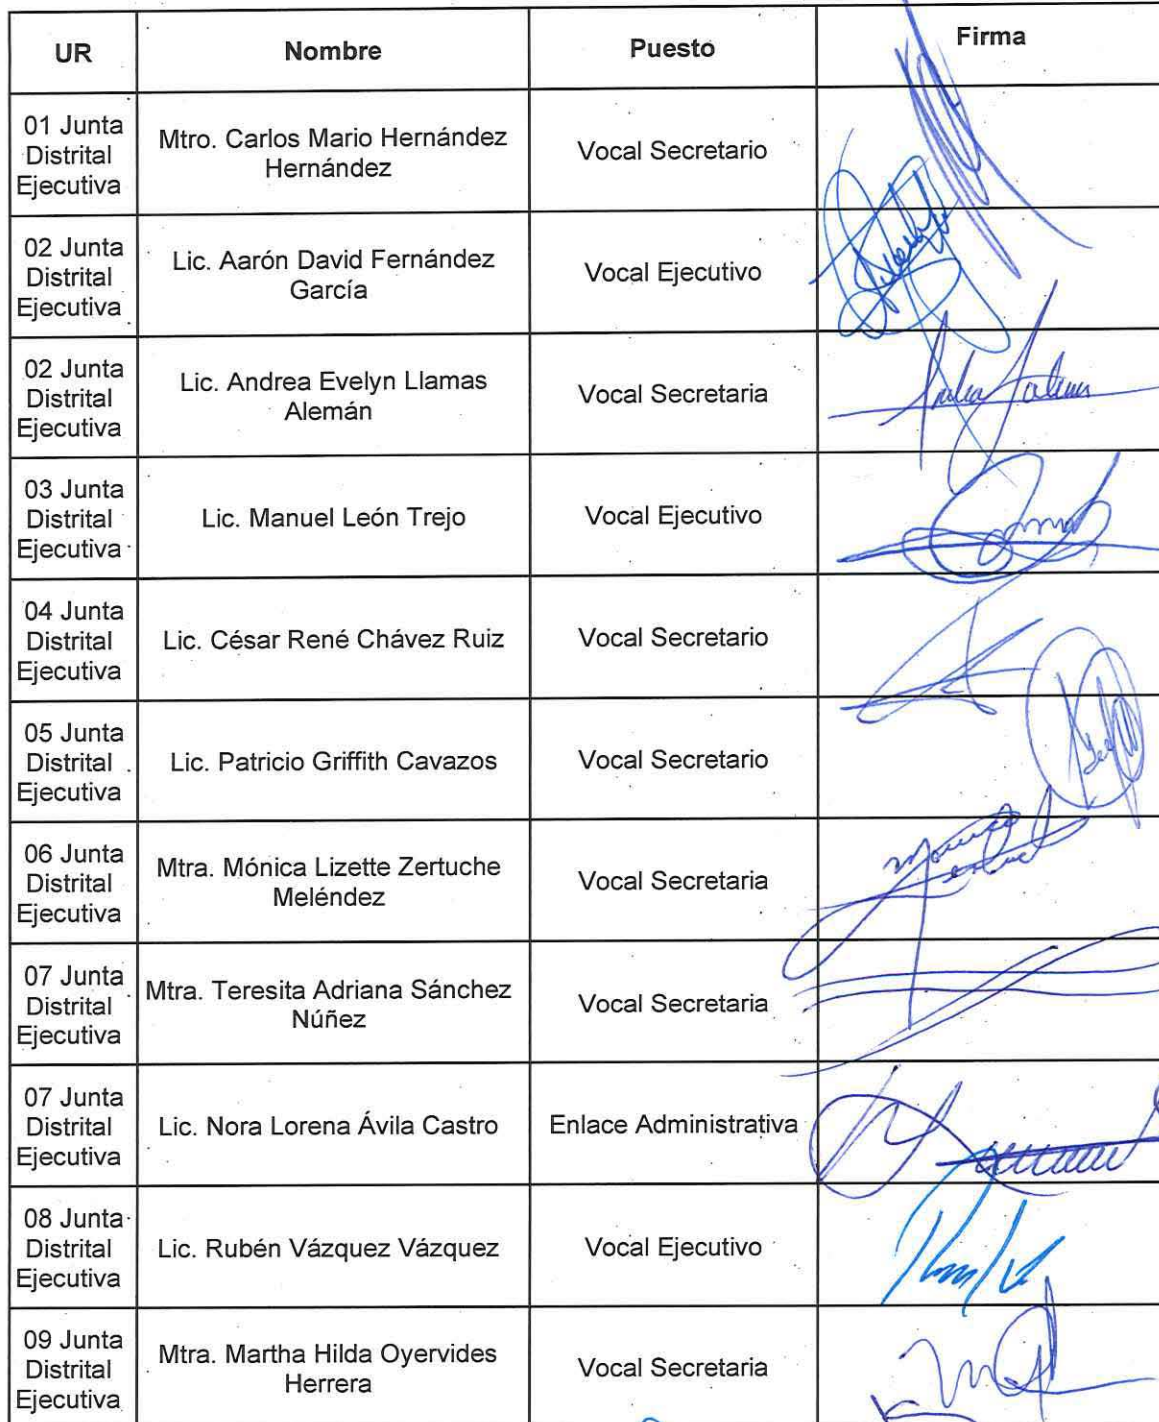 UR Nombre Puesto Firma
01 Junta
Distrital
Ejecutiva
Mtro. Carlos Mario Hernández
Hernández
Vocal Secretario
02 Junta
Distrital
Ejecutiva
Lic. Aarón David Fernández
García
Vocal Ejecutivo
02 Junta
Distrital
Ejecutiva
Lic. Andrea Evelyn Llamas
Alemán
Vocal Secretaria
03 Junta
Distrital
Ejecutiva
Lic. Manuel León Trejo
Vocal Ejecutivo
04 Junta
Distrital
Ejecutiva
Lic. César René Chávez Ruiz
Vocal Secretario
05 Junta
Distrital
Ejecutiva
Lic. Patricio Griffith Cavazos
Vocal Secretario
06 Junta
Distrital
Ejecutiva
Mtra. Mónica Lizette Zertuche
Meléndez
Vocal Secretaria
07 Junta
Distrital
Ejecutiva
Mtra. Teresita Adriana Sánchez
Núñez
Vocal Secretaria
07 Junta
Distrital
Ejecutiva
Lic. Nora Lorena Ávila Castro
Enlace Administrativa
08 Junta
Distrital
Ejecutiva
Lic. Rubén Vázquez Vázquez
Vocal Ejecutivo
09 Junta
Distrital
Ejecutiva
Mtra. Martha Hilda Oyervides
Herrera
Vocal Secretaria